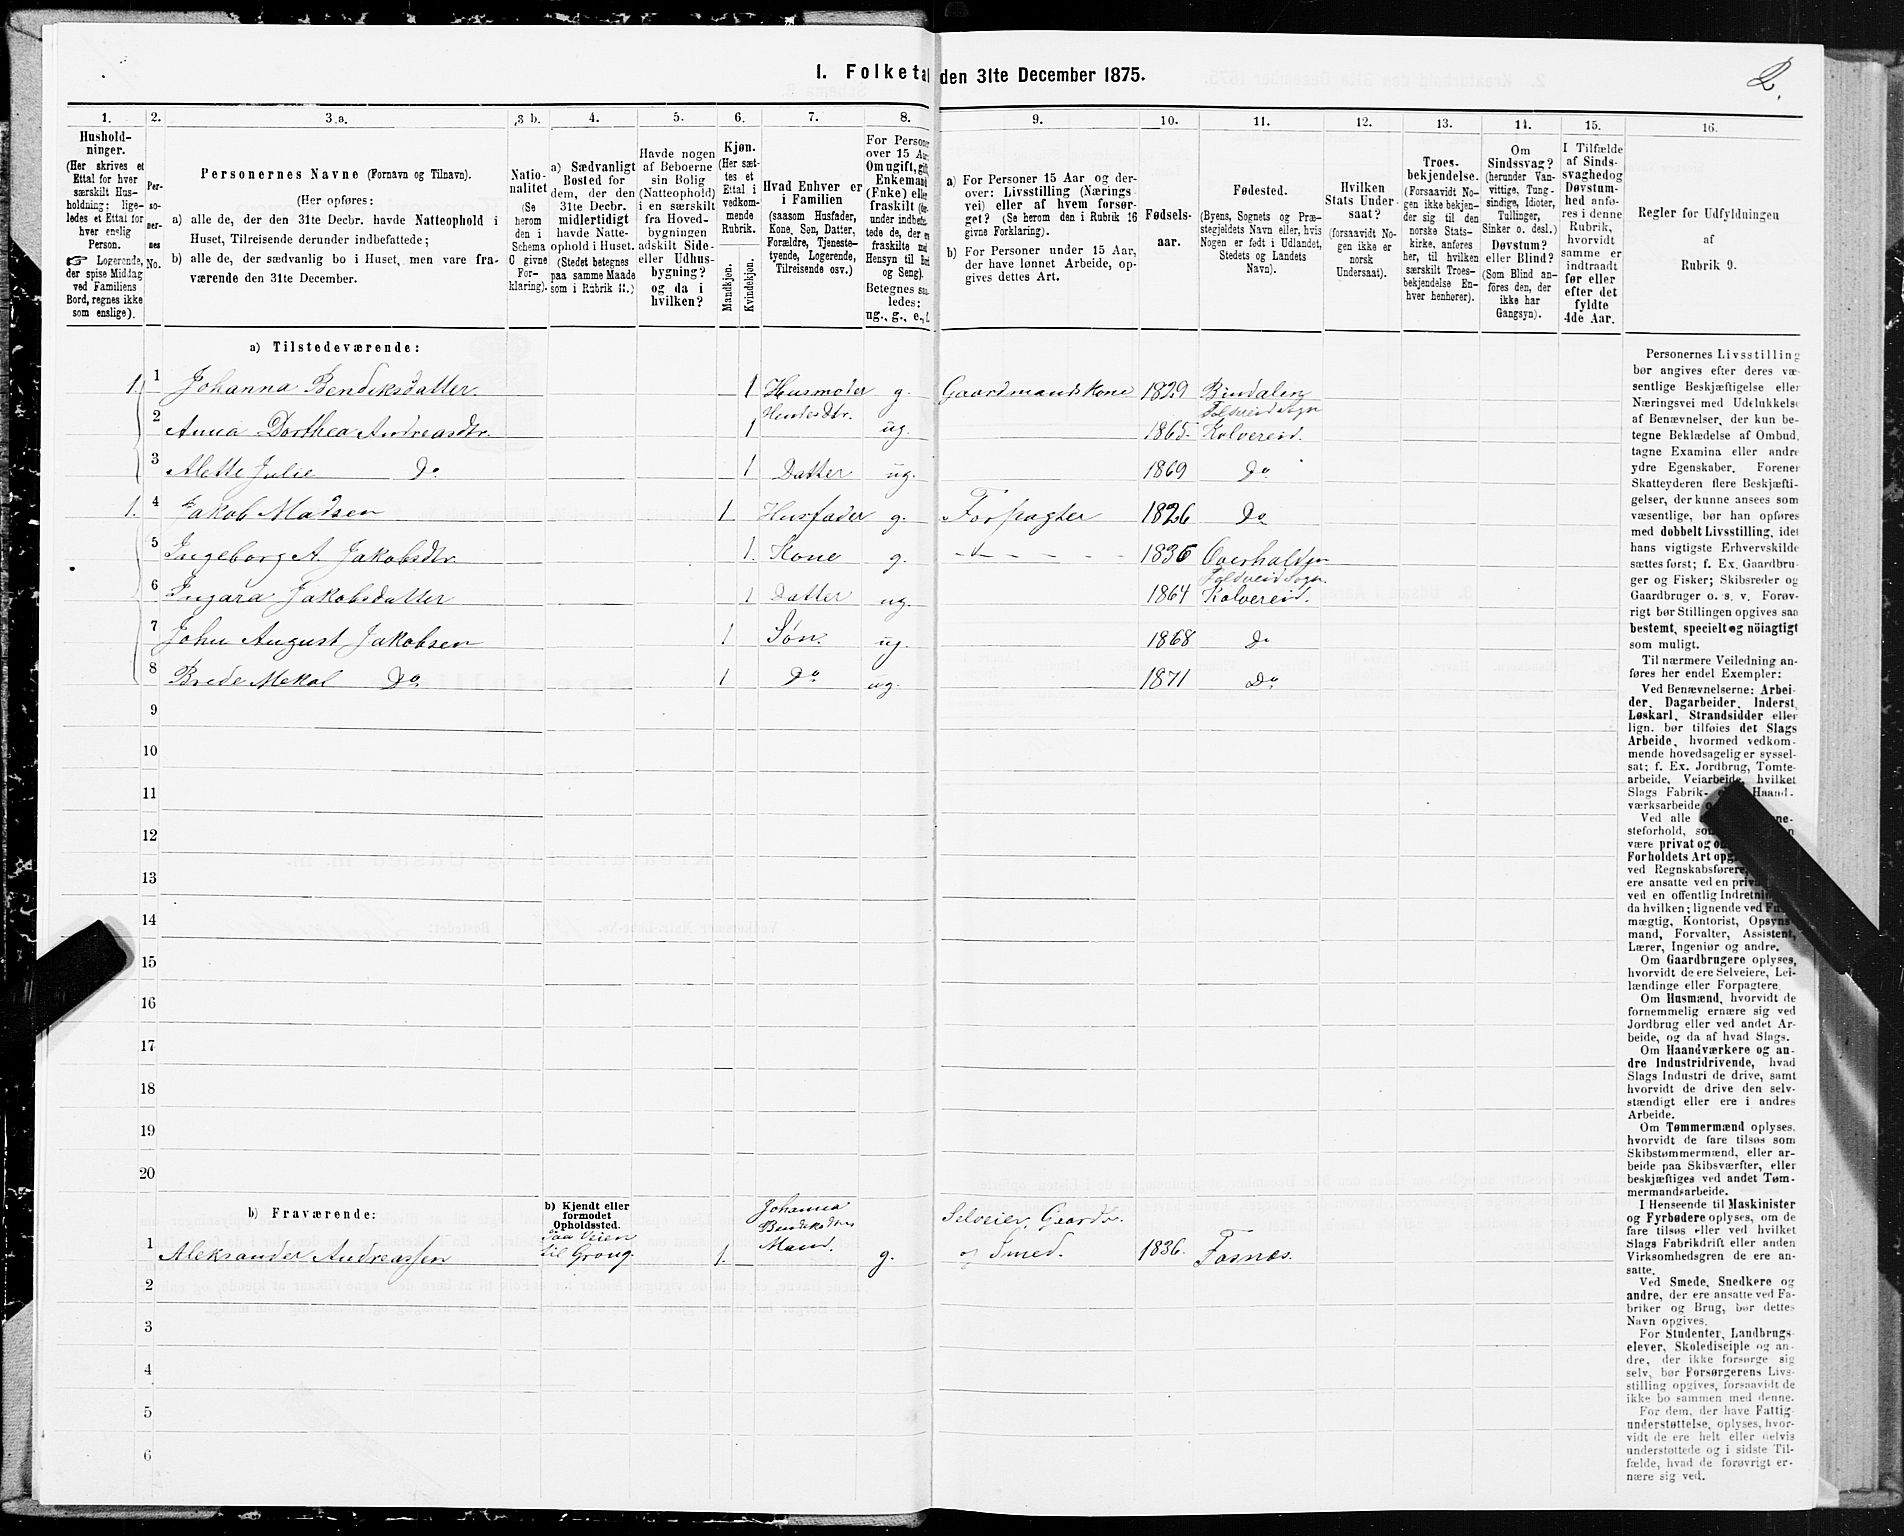 1. Folketal den 31te December 1875.
2.
1. 2. 3.a. 3 b. 4. 5. 6. 7. 8. 9. 10. 11. 12. 13. 14. 15. 16.
Hushold-
ninger.
(Her skrives et
Ettal for hver
særskilt Hus-
holdning; lige-
ledes et Ettal for
hver enslig
Person.
☞ Logerende,
der spise Middag
ved Familiens
Bord, regnes ikke
som enslige).
Per-
so-
ner-
nes
No.
Personernes Navne (Fornavn og Tilnavn).
(Her opføres:
a) alle de, der den 31te Decbr. havde Natteophold i
Huset, Tilreisende derunder indbefattede;
b) alle de, der sædvanlig bo i Huset, men vare fra-
værende den 31te December.
Natio-
nalitet
(Se
herom
den i
Schema
C givne
For-
klaring).
a) Sædvanligt
Bosted for
dem, der den
31te Decbr.
midlertidigt
havde Natte-
ophold i Huset.
(Stedet betegnes
paa samme Maade
som i Rubrik 11.)
Havde nogen
af Beboerne
sin Bolig
(Natteophold)
i en særskilt
fra Hoved-
bygningen
adskilt Side-
eller Udhus-
bygning?
og da i
hvilken?
Kjøn.
(Her sæt-
tes et
Ettal i
vedkom-
mende
Rubrik.
Mandkjøn.
Kvindekjøn.
Hvad Enhver er
i Familien
(saasom Husfader,
Kone, Søn, Datter,
Forældre, Tjeneste-
tyende, Logerende,
Tilreisende osv.)
For Personer
over 15 Aar:
Om ugift, gift,
Enkemand
(Enke) eller
fraskilt (der-
under indbefat-
tede de, der ere
fraskilte med
Hensyn til Bord
og Seng).
Betegnes saa-
ledes:
ug., g., e., f.
a) For Personer 15 Aar og der-
over: Livsstilling (Nærings-
vei) eller af hvem forsør-
get? (Se herom den i Rubrik 16
givne Forklaring).
b) For Personer under 15 Aar,
der have lønnet Arbeide, op-
gives dettes Art.
Fødsels-
aar.
Fødested.
(Byens, Sognets og Præ-
stegjeldets Navn eller, hvis
Nogen er født i Udlandet,
Stedets og Landets
Navn).
Hvilken
Stats Under-
saat?
(forsaavidt No-
gen ikke er
norsk
Undersaat).
Troes-
bekjendelse.
(Forsaavidt No-
gen ikke bekjen-
der sig til den
norske Stats-
kirke, anføres
her, til hvilken
særskilt Troes-
bekjendelse En-
hver henhører).
Om
Sindssvag?
(herunder Van-
vittige, Tung-
sindige, Idioter,
Tullinger,
Sinker o. desl.)
Døvstum?
eller Blind?
(Som Blind an-
føres den, der
ikke har
Gangsyn).
I Tilfælde
af Sinds-
svaghed og
Døvstum-
hed anfø-
res i denne
Rubrik,
hvorvidt
samme er
indtraadt
før eller
efter det
fyldte
4de Aar.
Regler for Udfyldningen
af
Rubrik 9.
a) Tilstedeværende:
1. 1 Johanna Bendiksdatter. 1 Husmoder g. Gaardmandskone 1829 Bindalen
2 Anna Dorthea Andreasdtr. 1 Hendes Dtr. ug. 1865. Foldereid Sogn Kolvereid.
3 Alette Julie Do 1 Datter ug. 1869 Do
1. 4 Jakob Madsen 1 Husfader g. Forpagter 1826 Do
5 Ingeborg A. Jakobsdtr. 1. Kone g. 1836 Overhalden
6 Ingara Jakobsdatter 1 Datter ug. 1864 Foldereid Sogn. Kolvereid.
7 John August Jakobsen 1 Søn. ug. 1868 Do
8 Brede Mekal Do 1 Do ug. 1871 Do
9
10
11
12
13
14
15
16
17
18
19
20
b) Fraværende:
b) Kjendt eller
formodet
Opholdssted.
1 Aleksander Andreassen Paa Veien til Grong. 1. Johanna Bendiksdtrs Mand. g. Selveier, Gaardb. og Smed. 1836. Fosnes.
2
3
4
5
6
Personernes Livsstilling
bør angives efter deres væ-
sentlige Beskjæftigelse eller
Næringsvei med Udelukkelse
af Benævnelser, der kun be-
tegne Beklædelse af Ombud,
tagne Examina eller andre
ydre Egenskaber. Forener
Skatteyderen flere Beskjæfti-
gelser, der kunne ansees som
væsentlige, bør han opføres
med dobbelt Livsstilling, idet
hans vigtigste Erhvervskilde
sættes først; f. Ex. Gaardbru-
ger og Fisker; Skibsreder og
Gaardbruger o. s. v. Forøv-
rigt bør Stillingen opgives saa
bestemt, specielt og nöiagtigt
som muligt.
Til nærmere Veiledning an-
føres her endel Exempler:
Ved Benævnelserne: Arbei-
der, Dagarbeider, Inderst,
Løskarl, Strandsidder eller
lign. bør tilføies det Slags
Arbeide, hvormed vedkom-
mende hovedsagelig er syssel-
sat; f. Ex. Jordbrug, Tomte-
arbeide, Veiarbeide, hvilket
Slags Fabrik- Haand-
værksarbeide
Ved alle
steforhold,
være privat og
Forholdets Art
ved Regnskabsførere,
ere ansatte ved en
ved en offentlig Indretning
da hvilken; lignende ved
mægtig, Kontorist, Opsyns-
mand, Forvalter, Assistent,
Lærer, Ingeniør og andre.
Om Gaardbrugere oplyses,
hvorvidt de ere Selveiere, Lei-
lændinge eller Forpagtere.
Om Husmænd, hvorvidt de
fornemmelig ernære sig ved
Jordbrug eller ved andet Ar-
beide, og da af hvad Slags.
Om Haandværkere og an-
dre Industridrivende, hvad
Slags Industri de drive, samt
hvorvidt de drive den selv-
stændigt eller ere i andres
Arbeide.
Om Tømmermænd oplyses,
hvorvidt de fare tilsøs som
Skibstømmermænd, eller ar-
beide paa Skibsværfter, eller
beskjæftiges ved andet Tøm-
mermandsarbeide.
I Henseende til Maskinister
og Fyrbødere oplyses, om de
fare tilsøs eller ved hvilket
Slags Fabrikdrift eller anden
Virksomhedsgren de ere an-
satte.
Ved Smede, Snedkere og
andre, der ere ansatte ved Fa-
briker og Brug, bør dettes
Navn opgives.
For Studenter, Landbrugs-
elever, Skoledisciple og an-
dre, der ikke forsørge sig
selv, bør Forsørgerens Livs-
stilling opgives, forsaavidt de
ikke bo sammen med denne.
For dem, der have Fattig-
understøttelse, oplyses, hvor-
vidt de ere helt eller delvis
understøttede og i sidste Til-
fælde, hvad de forøvrigt er-
nære sig ved.